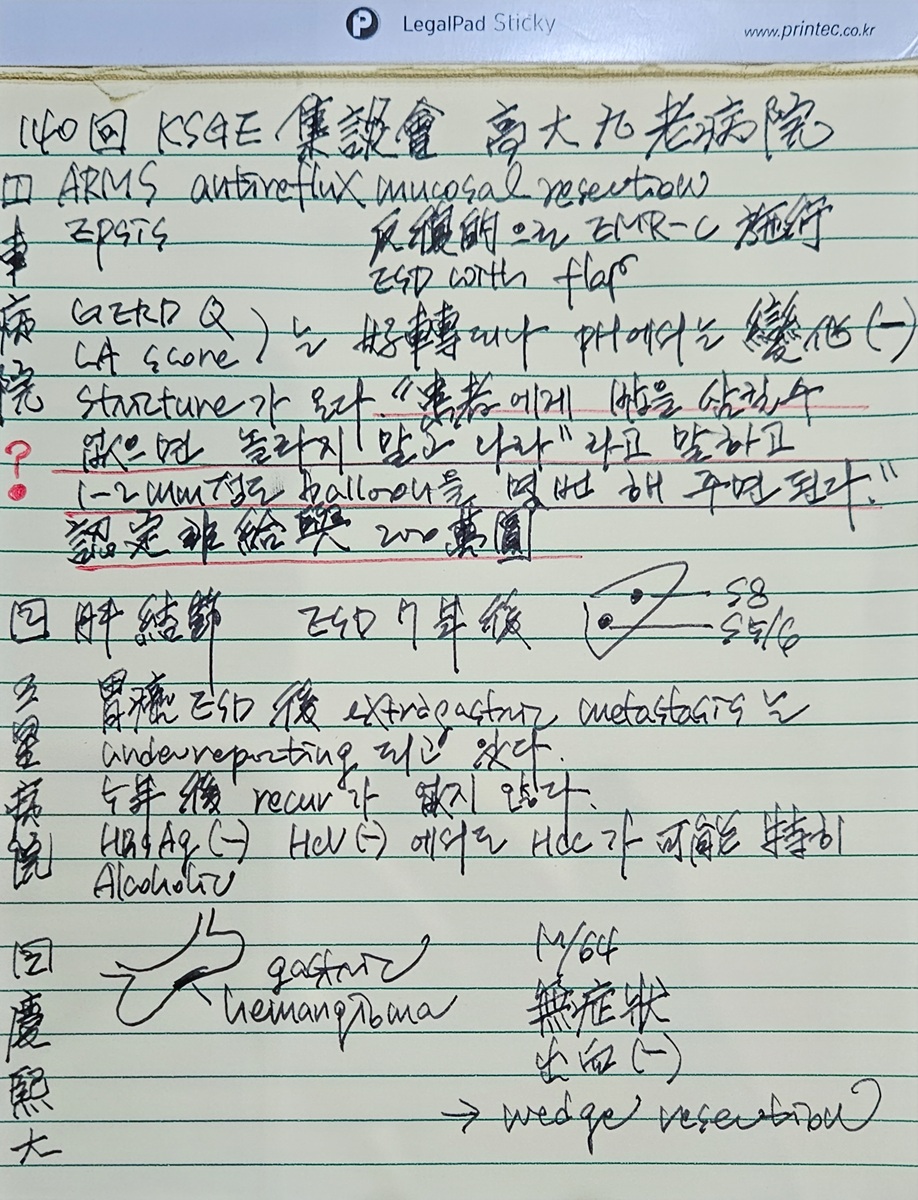 LegalPad Sticky
www.printec.co.kr
140回 KSGE 集談會 高大九老病院
1 ARMS antireflux mucosal resection
車病院
?!
Epsis 反復的으로 EMR-C 施行
ESD with flap
GERD Q
LA score
) 는 好轉되나 pH에서는 變化 (-)
stricture가 온다. “患者에게 밥을 삼킬 수
없으면 놀라지 말고 나라" 라고 말하고
1-2mm정도 balloon을 몇 번 해 주면 된다."
認定非給與 200萬圓
2 肝結節 ESD 7年後
S8
S5/6
三星病院
胃癌 ESD 後 extragastric metastasis는
underreporting 되고 있다.
수年 後 recur가 없지 않다.
HBsAg (-) HCV (-) 에서도 HCC가 可能 特히
Alcoholic
3 慶熙大
gastric
hemangioma
M/64
無症狀
出血 (-)
→ wedge resection